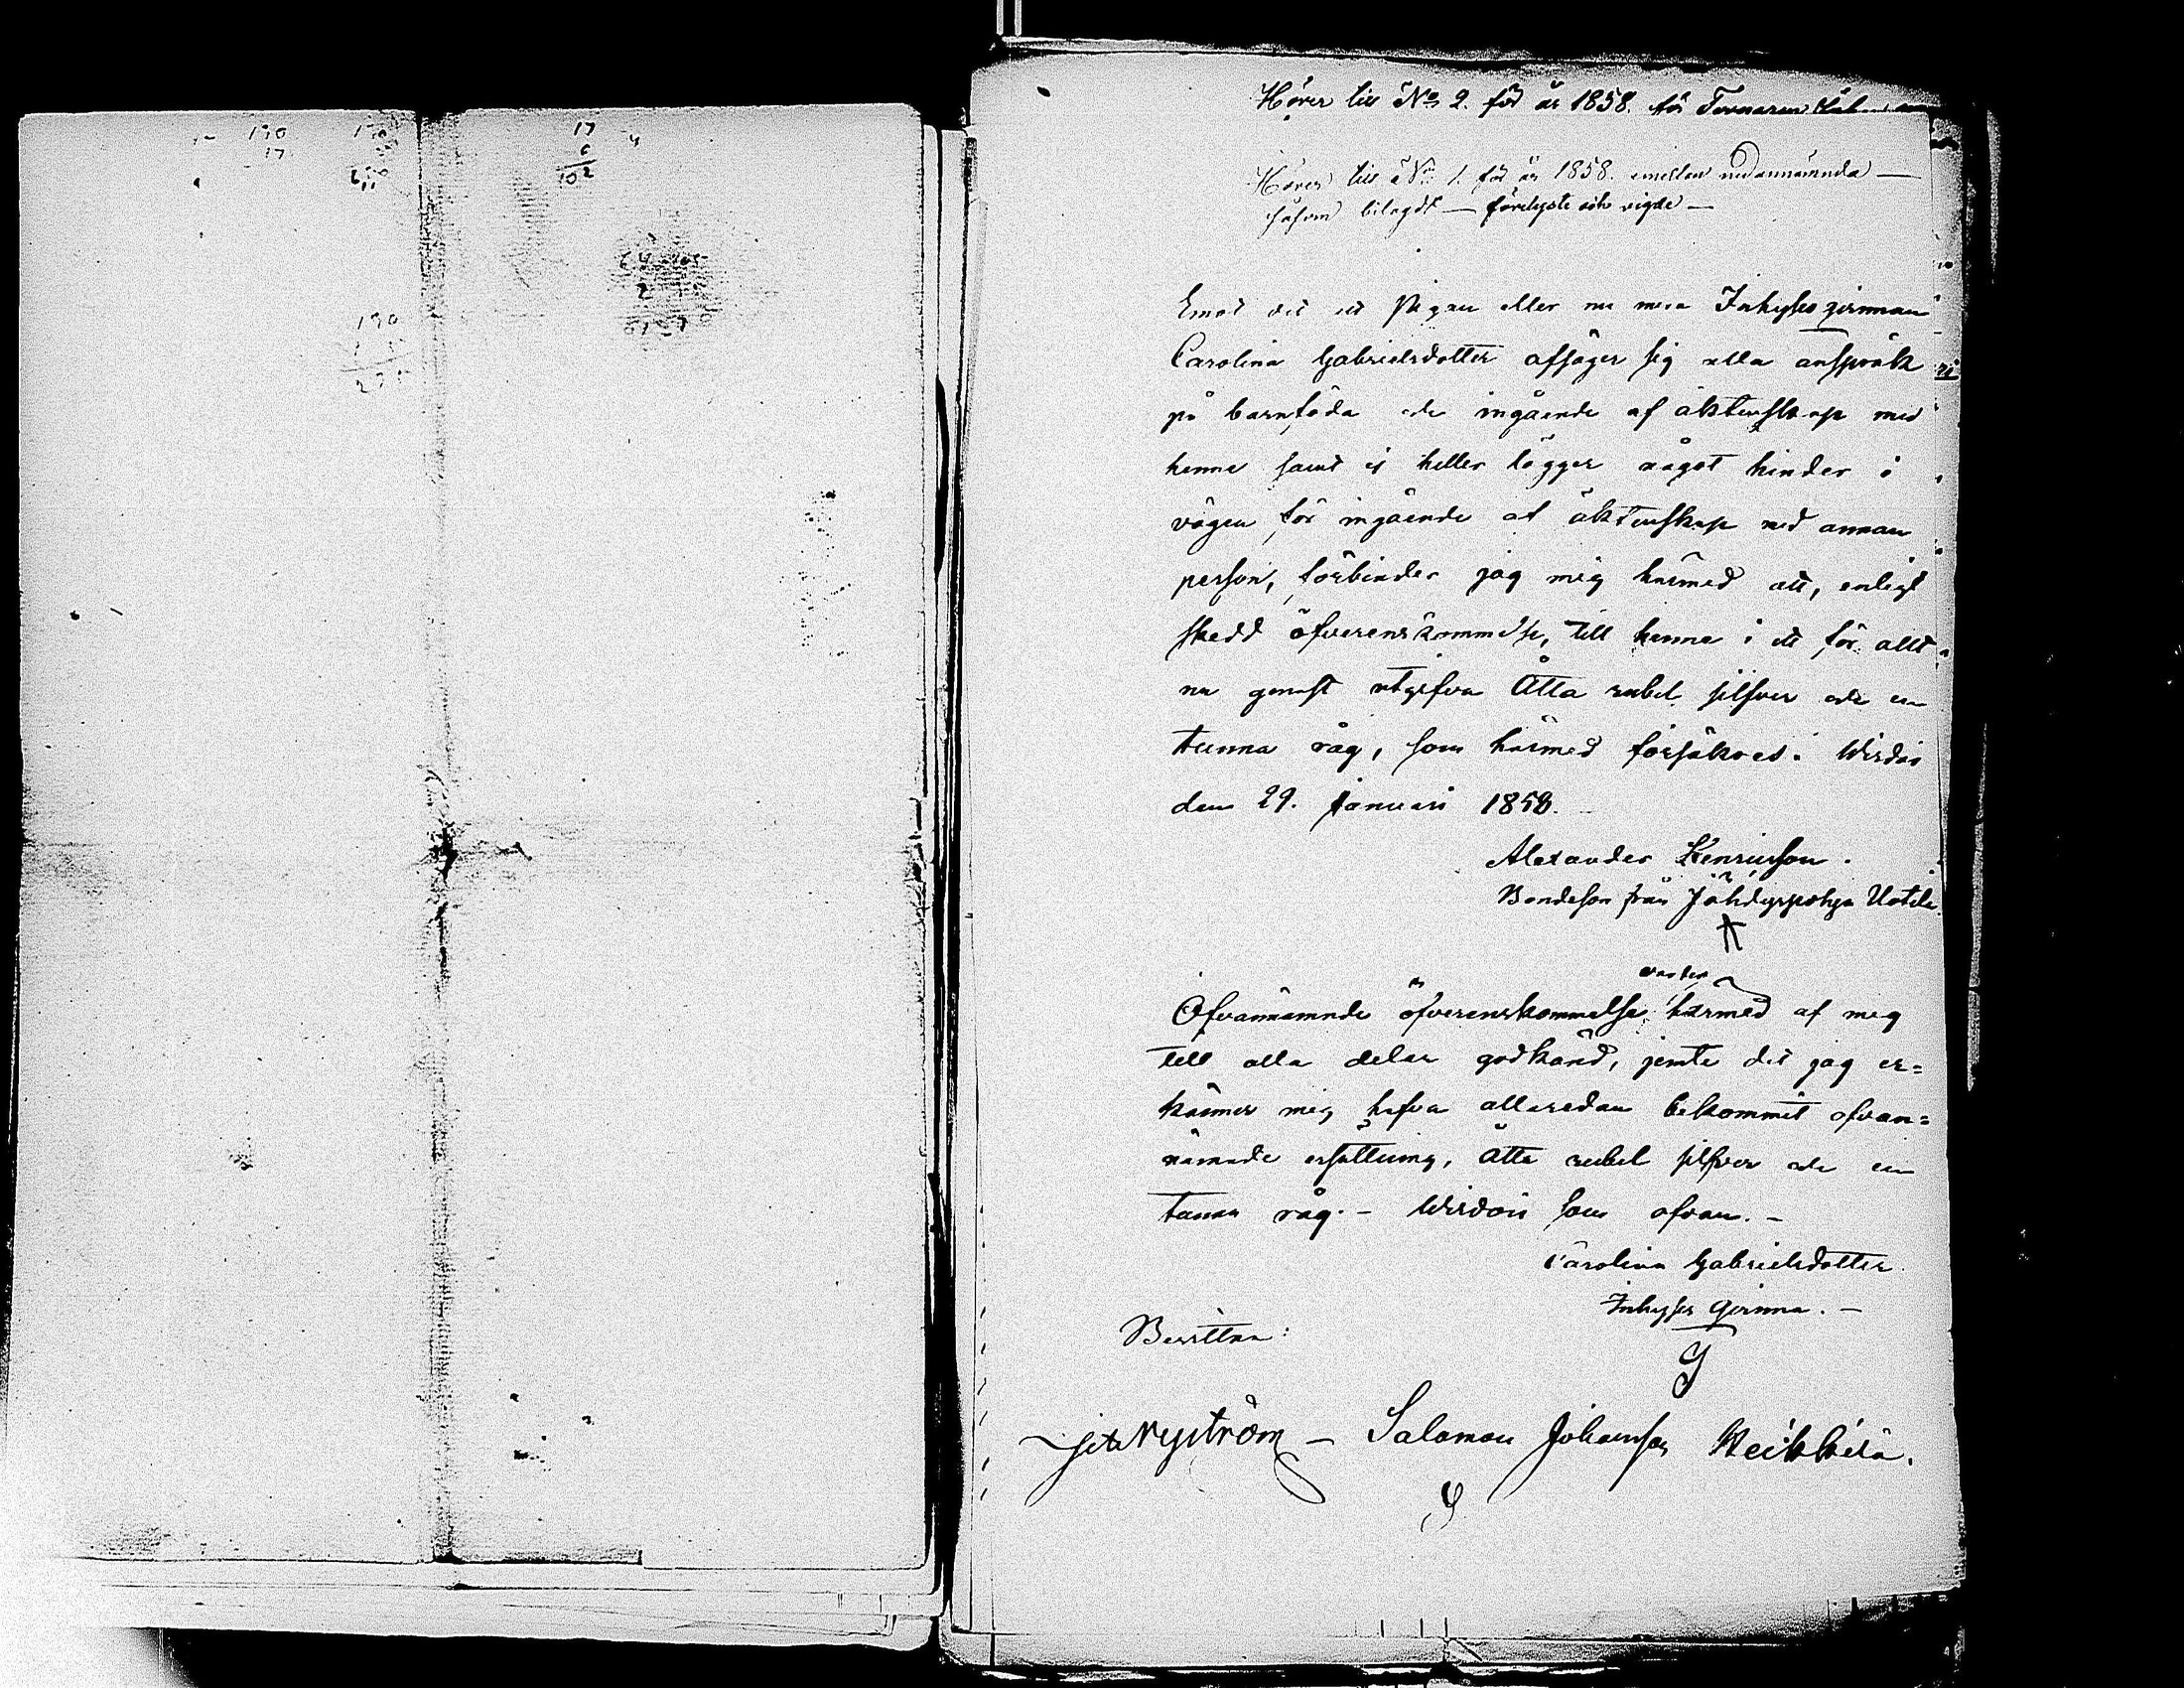 190
17
190
17
6
102
190
Hörer till No 2. för år 1858. för Torparen
Hörer till No 1. för år 1858. emedan nedannämnda —
såsom bilagdt — förelyste och vigde —
Emot det att Pigan eller nu mera Inhyses qvinnan
Carolina Gabrielsdotter afsäger sig alla anspråk
på barnföda och ingående af äktenskap med
henne samt ej heller lägger något hinder i
vägen för ingående af äktenskap med annan
person, förbinder jag mig härmed att, enligt
skedd öfverenskommelse, till henne i ett för allt
nu genast utgifva Åtta rubel silfver och en
tunna råg, som härmed försäkras. Wirdois
den 29. Januari 1858.
Alexander Henricsson.
Bondeson från Jähdyspohja Uotila.
varder
Ofvannämnde öfverenskommelse härmed af mig
till alla delar godkänd, jemte det jag er=
känner mig hafva allaredan bekommit ofvan=
nämnde ersättning, åtta rubel silfver och en
tunna råg. — Wirdois som ofvan. —
Carolina Gabrielsdotter.
Inhyses qvinna. —
Bevittna:
Nyström — Salomon Johansson Heikkilä.